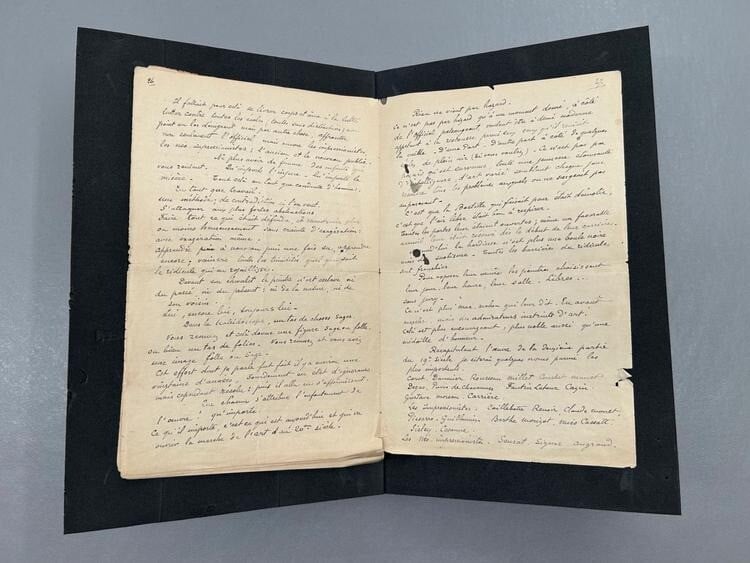 26
Il fallait pour cela se livrer corps et âme à la lutte
lutter contre toutes les écoles (toutes sans distinction)
point en les dénigrant mais par autre chose, affronter
non seulement l'officiel mais encore les impressionistes,
les néo impressionistes, l'ancien et le nouveau public.
Ne plus avoir de femme, des enfants qui
vous renient. Qu'importe l'injure. Qu'importe la
misère. Tout cela en tant que conduite d'homme.
En tant que travail.
une méthode, de contradiction si l'on veut
S'attaquer aux plus fortes abstractions
Faire tout ce qui était défendu, et reconstruire plus
ou moins heureusement sans crainte d'exagération:
avec exagération même.
Apprendre à nouveau puis une fois su, apprendre
encore. vaincre toutes les timidités quel que soit
le ridicule qui en rejaillisse.
Devant son chevalet le peintre n'est esclave ni
du passé, ni du présent: ni de la nature, ni de
son voisin.
Lui, encore lui, toujours lui.
Dans le kaléidoscope, un tas de choses sages
Vous remuez et cela donne une figure sage ou folle
ou bien un tas de folies. Vous remuez et vous avez
une image folle ou sage.
Cet effort dont je parle fut fait il y a environ une
vingtaine d'années. Sourdement en état d'ignorance
mais cependant résolu: puis il alla en s'affermissant.
Que chacun s'attribue l'enfantement de
l'œuvre! qu'importe.
Ce qu'il importe, c'est ce qui est aujourd'hui et qui va
ouvrir la marche de l'art du 20me siècle.
Rien ne vient par hazard.
Ce n'est pas par hazard qu'à un moment donné, à côté
de l'officiel
la quille. D'une Part. D'autre part à côté de quelques
de plein air
une jeunesse étonnante
d'intelligence, d'art varié: semblant chaque jour
tous les problèmes auxquels on ne songeait pas
auparavant.
C'est que la Bastille qui faisait peur était démolie,
c'est que l'air libre était bon à respirer.
Toutes les portes leur étaient ouvertes;
dès le début de leur carrière.
la hardiesse n'est plus une boule noire
Toutes les barrières du ridicule
sont franchies
Pour exposer leur œuvre les peintres choisissent
leur jour, leur heure, leur salle. Libres
sans jury.
mais des admirateurs instruits d'art.
Cela est plus encourageant, plus noble aussi qu'une
médaille d'honneur.
Récapitulant l'œuvre de la Deuxième partie
du 19e siècle je citerai quelques noms parmi les
plus importants.
Corot. Daumier. Rousseau Millet Courbet Manet
Degas. Puvis de Chavannes. Fantin Latour Cazin
Gustave Moreau. Carrière
Les Impressionistes. Caillebotte Renoir Claude Monet.
Pissarro. Guillaumin. Berthe Morizot, miss Cassatt
Sisley. Cezanne.
Les Néo-impressionistes. Seurat. Signac Angrand.